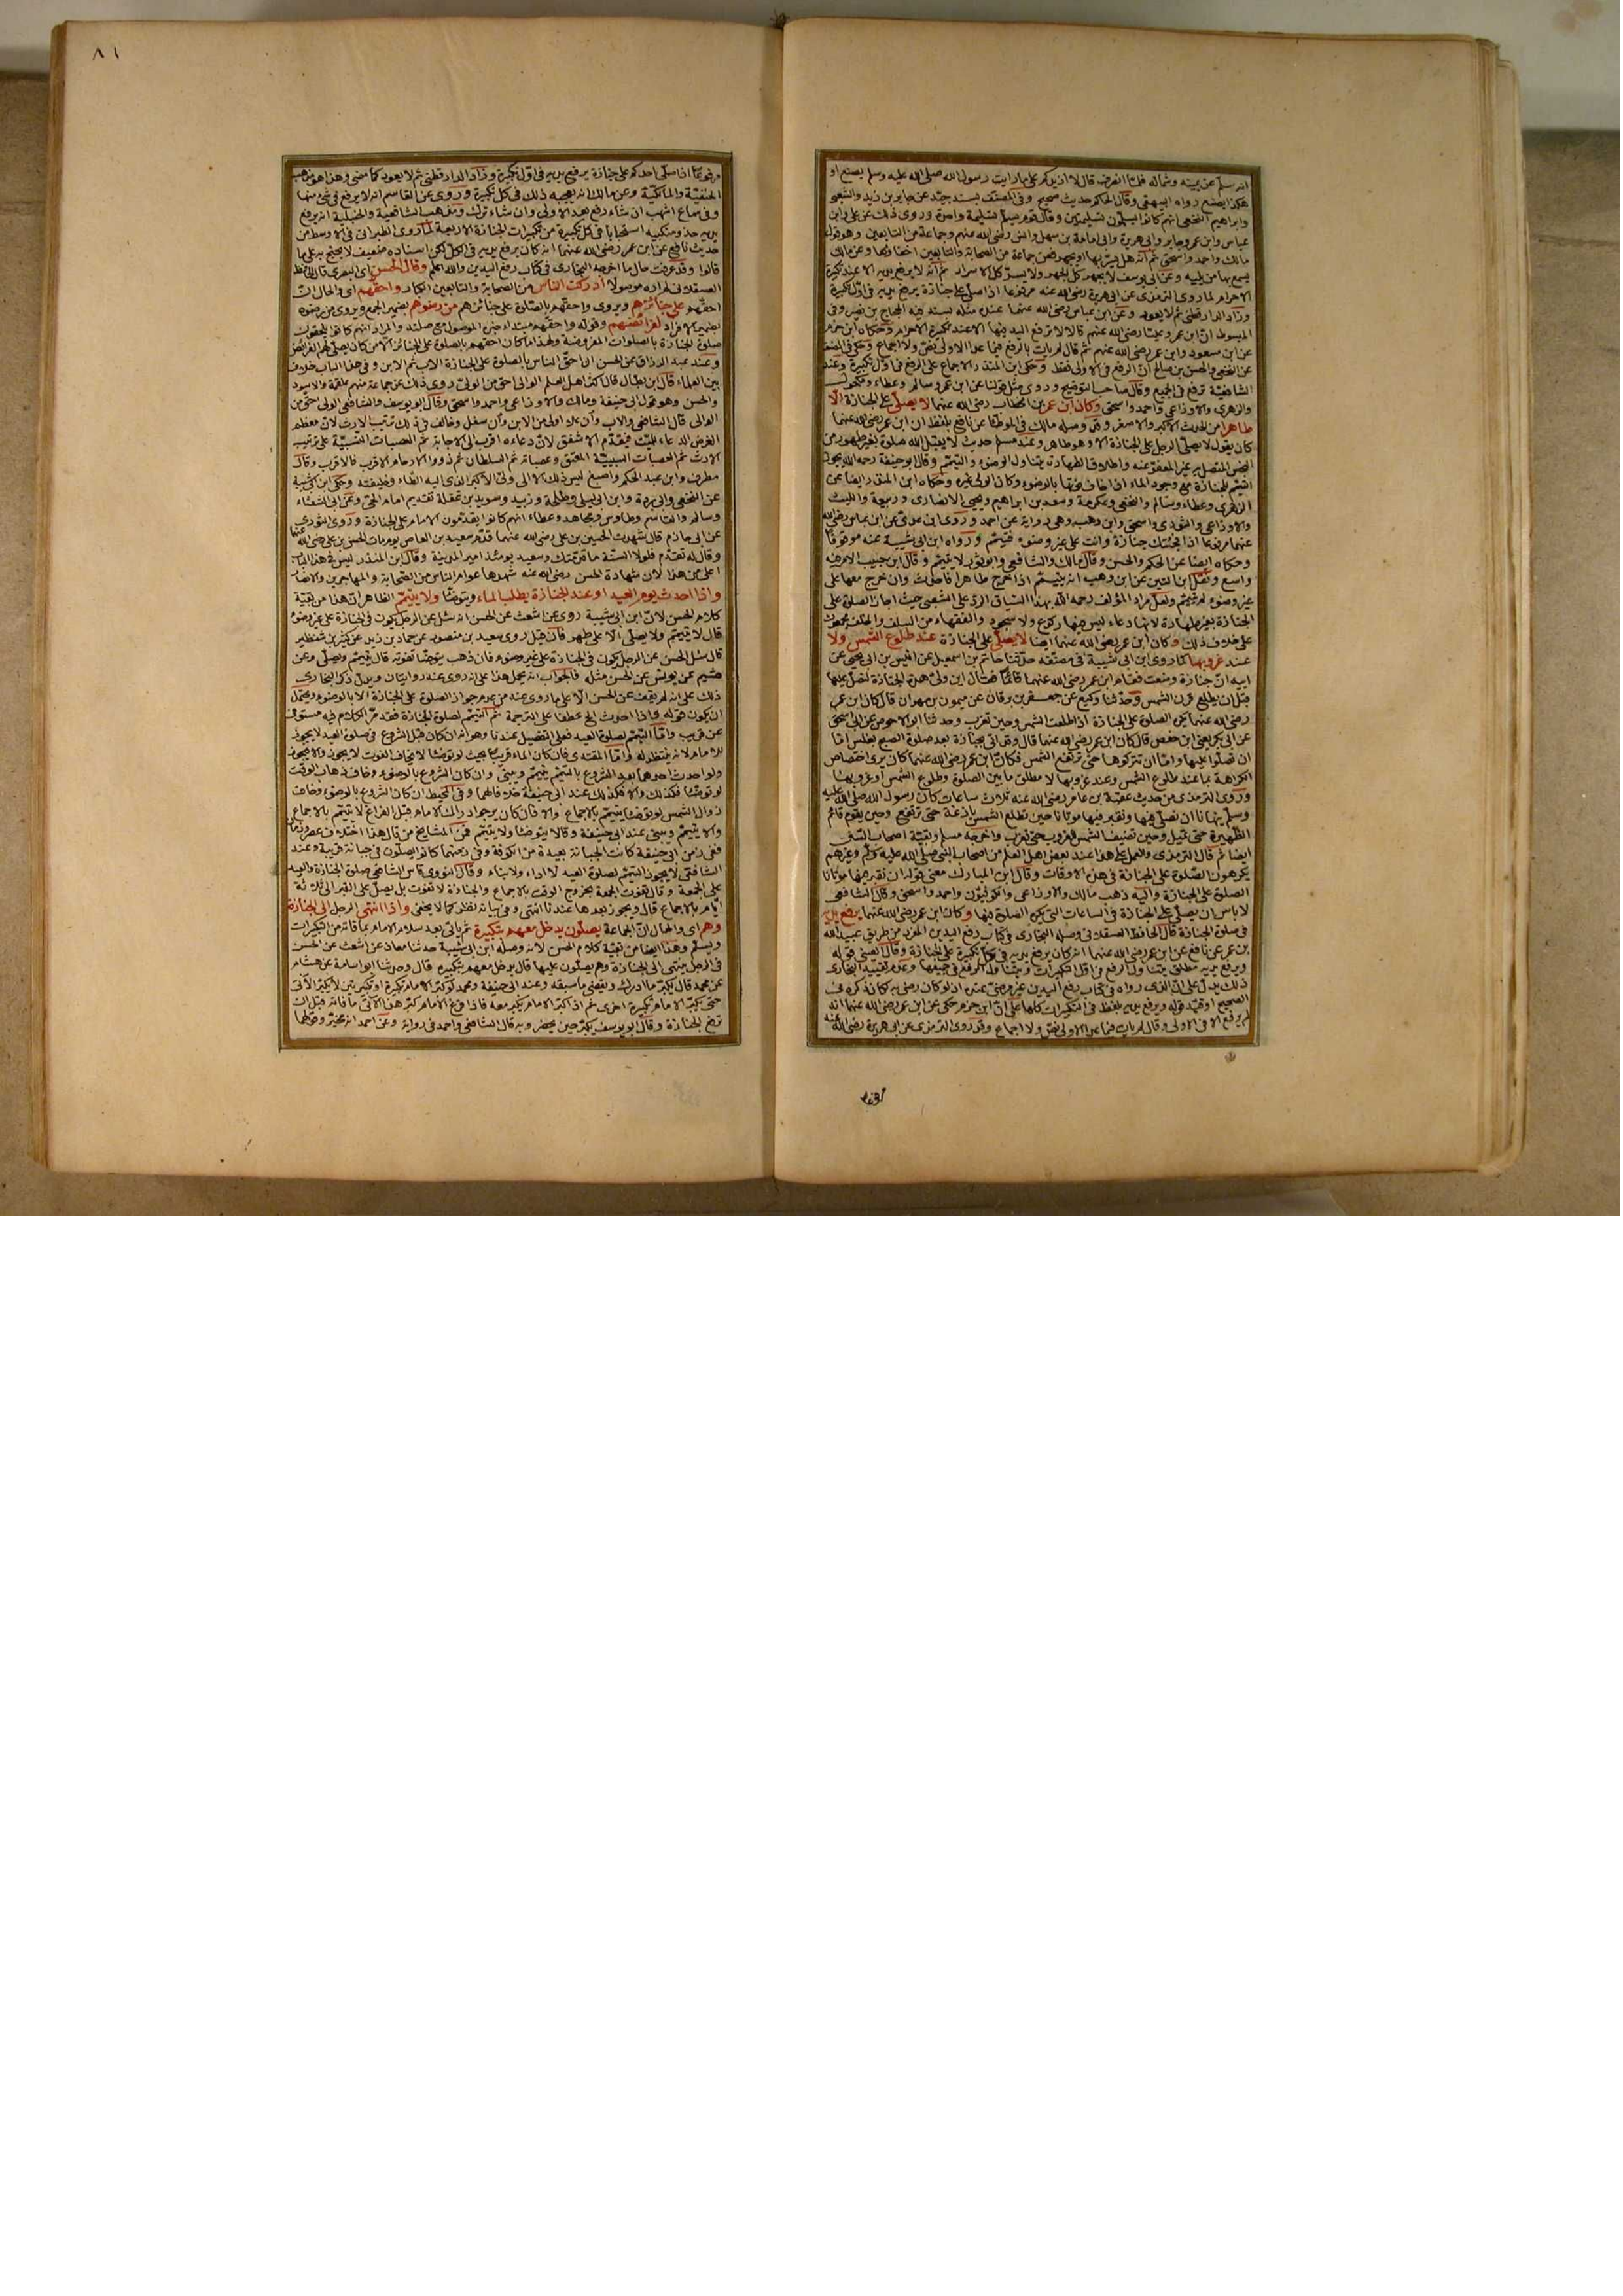 انه سلم عن يمينه وشماله فلما انصرف قال لا ازيدكم على ما رايت رسول الله صلى الله عليه وسلم يصنع او
هكذا يصنع رواه البيهقى وقال الحاكم حديث صحيح وفى المصنف بسند جيد عن جابر بن زيد والشعبى
وابراهيم النخعى انهم كانوا يسلمون تسليمتين وقال قوم يسلم تسليمة واحدة وروى ذلك عن على وابن
عباس وابن عمر وجابر وابى هريرة وابى امامة بن سهل وانس رضى الله عنهم وجماعة من التابعين وهو قول
مالك واحمد واسحق ثم انه هل يسر بها او يجهر فعن جماعة من الصحابة والتابعين اخفاؤها وعن مالك
يسمع بها من يليه وعن ابى يوسف لا يجهر كل الجهر ولا يسر كل الاسرار ثم انه لا يرفع يديه الا عند تكبيرة
الاحرام لما روى الترمذى عن ابى هريرة رضى الله عنه مرفوعا اذا صلى على جنازة يرفع يديه فى اول تكبيرة
وزاد الدارقطنى ثم لا يعود وعن ابن عباس رضى الله عنهما عنده مثله بسند فيه الحجاج بن نصير وفى
المبسوط ان ابن عمر وعليا رضى الله عنهم قالا لا ترفع اليد فيها الا عند تكبيرة الاحرام وحكاه ابن حزم
عن ابن مسعود وابن عمر رضى الله عنهم ثم قال لم يات بالرفع فيما عدا الاولى نص ولا اجماع وحكى فى المصنف
عن النخعى والحسن بن صالح ان الرفع فى الاولى فقط وحكى ابن المنذر الاجماع على الرفع فى اول تكبيرة وعند
الشافعية ترفع فى الجميع وقال صاحب التوضيح وروى مثل قولنا عن ابن عمر وسالم وعطاء ومكحول
والزهرى والاوزاعى واحمد واسحق وكان ابن عمر بن الخطاب رضى الله عنهما لا يصلى على الجنازة الا
طاهرا من الحدث الاكبر والاصغر وقد وصله مالك فى الموطأ عن نافع بلفظ ان ابن عمر رضى الله عنهما
كان يقول لا يصلى الرجل على الجنازة الا وهو طاهر وعند مسلم حديث لا يقبل الله صلوة بغير طهور ومن
النجس المتصل به غير المعفو عنه واطلاق الطهارة يتناول الوضوء والتيمم وقال ابو حنيفة رحمه الله يجوز
التيمم للجنازة مع وجود الماء اذا خاف فوتها بالوضوء وكان الولى غيره وحكاه ابن المنذر ايضا عن
الزهرى وعطاء وسالم والنخعى وعكرمة وسعد بن ابراهيم ويحيى الانصارى وربيعة والليث
والاوزاعى والثورى واسحق وابن وهب وهى رواية عن احمد وروى ابن عدى عن ابن عباس رضى الله
عنهما مرفوعا اذا فجئتك جنازة وانت على غير وضوء فتيمم ورواه ابن ابى شيبة عنه موقوفا
وحكاه ايضا عن الحكم والحسن وقال مالك والشافعى وابو ثور لا يتيمم وقال ابن حبيب الامر فيه
واسع ونقل ابن التين عن ابن وهب انه يتيمم اذا خرج طاهرا فاحدث وان خرج معها على
غير وضوء لم يتيمم ولعل مراد المؤلف رحمه الله بهذا السياق الرد على الشعبى حيث اجاز الصلوة على
الجنازة بغير طهارة لانها دعاء ليس فيها ركوع ولا سجود والفقهاء من السلف والخلف مجمعون
على خلاف ذلك وكان ابن عمر رضى الله عنهما ايضا لا يصلى على الجنازة عند طلوع الشمس ولا
عند غروبها كما روى ابن ابى شيبة فى مصنفه حدثنا حاتم بن اسمعيل عن انيس بن ابى يحيى عن
ابيه ان جنازة وضعت فقام ابن عمر رضى الله عنهما قائما فقال اين ولى هذه الجنازة ليصل عليها
قبل ان يطلع قرن الشمس وحدثنا وكيع عن جعفر بن برقان عن ميمون بن مهران قال كان ابن عمر
رضى الله عنهما يكره الصلوة على الجنازة اذا طلعت الشمس وحين تغرب وحدثنا ابو الاحوص عن ابى اسحق
عن ابى بكر يعنى ابن حفص قال كان ابن عمر رضى الله عنهما قال وقد اتى بجنازة بعد صلوة الصبح بغلس اما
ان تصلوا عليها واما ان تتركوها حتى ترتفع الشمس فكان ابن عمر رضى الله عنهما كان يرى اختصاص
الكراهة بما عند طلوع الشمس وعند غروبها لا مطلق ما بين الصلوة وطلوع الشمس او غروبها
وروى الترمذى من حديث عقبة بن عامر رضى الله عنه ثلاث ساعات كان رسول الله صلى الله عليه
وسلم ينهانا ان نصلى فيها ونقبر فيها موتانا حين تطلع الشمس بازغة حتى ترتفع وحين يقوم قائم
الظهيرة حتى تميل وحين تضيف الشمس للغروب حتى تغرب واخرجه مسلم وبقية اصحاب السنن
ايضا ثم قال الترمذى والعمل على هذا عند بعض اهل العلم من اصحاب النبى صلى الله عليه وسلم وغيرهم
يكرهون الصلوة على الجنازة فى هذه الاوقات وقال ابن المبارك معنى قوله ان نقبر فيها موتانا
الصلوة على الجنازة واليه ذهب مالك والاوزاعى والكوفيون واحمد واسحق وقال الشافعى
لا باس ان يصلى على الجنازة فى الساعات التى يكره الصلوة فيها وكان ابن عمر رضى الله عنهما يرفع يديه
فى صلوة الجنازة قال الحافظ العسقلانى وصله البخارى فى كتاب رفع اليدين المفرد من طريق عبيد الله
بن عمر عن نافع عن ابن عمر رضى الله عنهما انه كان يرفع يديه فى كل تكبيرة على الجنازة وقال العينى قوله
ويرفع يديه مطلق يتناول الرفع فى اول التكبيرات ويتناول الرفع فى جميعها وعدم تقييد البخارى
ذلك يدل على ان الذى رواه فى كتاب رفع اليدين غير مرضى عنده اذ لو كان رضى به كان ذكره فى
الصحيح او قيد قوله ويرفع يديه بلفظ فى التكبيرات كلها على ان ابن حزم حكى عن ابن عمر رضى الله عنهما انه
لم يرفع الا فى الاولى وقال لم يات فيما عدا الاولى نص ولا اجماع وقد روى الترمذى عن ابى هريرة رضى الله عنه
٨١
مرفوعا اذا صلى احدكم على جنازة يرفع يديه فى اول تكبيرة وزاد الدارقطنى ثم لا يعود كما مضى وهذا هو مذهب
الحنفية والمالكية وعن مالك انه يعجبه ذلك فى كل تكبيرة وروى عن القاسم انه لا يرفع فى شئ منها
وفى سماع اشهب ان شاء رفع بعد الاولى وان شاء ترك ومذهب الشافعية والحنبلية انه يرفع
يديه حذو منكبيه استحبابا فى كل تكبيرة من تكبيرات الجنازة الاربعة لما روى الطبرانى فى الاوسط من
حديث نافع عن ابن عمر رضى الله عنهما انه كان يرفع يديه فى الكل لكن اسناده ضعيف لا يحتج به على ما
قالوا وقد عرفت حال ما اخرجه البخارى فى كتاب رفع اليدين والله اعلم وقال الحسن اى البصرى قال الحافظ
العسقلانى لم اره موصولا ادركت الناس من الصحابة والتابعين الكبار واحقهم اى والحال ان
احقهم على جنائزهم ويروى واحقهم بالصلوة على جنائزهم من رضوهم بضمير الجمع ويروى من رضوه
بضمير الافراد لفرائضهم وقوله واحقهم مبتداء خبره الموصول مع صلته والمراد انهم كانوا يلحقون
صلوة الجنازة بالصلوات المفروضة ولهذا كان احقهم بالصلوة على الجنائز الامن كان يصلى لهم الفرائض
وعند عبد الرزاق عن الحسن ان احق الناس بالصلوة على الجنازة الاب ثم الابن وفى هذا الباب خلاف
بين العلماء قال ابن بطال قال اكثر اهل العلم الوالى احق من الولى روى ذلك عن جماعة منهم علقمة والاسود
والحسن وهو قول ابى حنيفة ومالك والاوزاعى واحمد واسحق وقال ابو يوسف والشافعى الولى احق من
الوالى قال الشافعى والاب وان علا اولى من الابن وان سفل وخالف فى ذلك ترتيب الارث لان معظم
الغرض الدعاء للميت فيقدم الاشفق لان دعاءه اقرب الى الاجابة ثم العصبات النسبية على ترتيب
الارث ثم العصبات السببية المعتق وعصباته ثم السلطان ثم ذووا الارحام الاقرب فالاقرب وقال
مطرف وابن عبد الحكم واصبغ ليس ذلك الا الى والى الاكبر الذى اليه القضاء وخليفته وحكى ابن ابى شيبة
عن النخعى وابى بردة وابن ابى ليلى وطلحة وزبيد وسويد بن غفلة تقديم امام الحى وعن ابى الشعثاء
وسالم والقاسم وطاوس ومجاهد وعطاء انهم كانوا يقدمون الامام على الجنازة وروى الثورى
عن ابى حازم قال شهدت الحسين بن على رضى الله عنهما قدم سعيد بن العاص يوم مات الحسن بن على رضى الله عنهما
وقال له تقدم فلولا السنة ما قدمتك وسعيد يومئذ امير المدينة وقال ابن المنذر ليس فى هذا الباب
اعلى من هذا لان شهادة الحسن رضى الله عنه شهدها عوام الناس من الصحابة والمهاجرين والانصار
واذا احدث يوم العيد او عند الجنازة يطلب الماء ويتوضأ ولا يتيمم الظاهر ان هذا من بقية
كلام الحسن لان ابن ابى شيبة روى عن اشعث عن الحسن انه سئل عن الرجل يكون فى الجنازة على غير وضوء
قال لا يتيمم ولا يصلى الا على طهر فان قيل روى سعيد بن منصور عن حماد بن زيد عن كثير بن شنظير
قال سئل الحسن عن الرجل يكون فى الجنازة على غير وضوء فان ذهب يتوضأ تفوته قال يتيمم ويصلى وعن
هشيم عن يونس عن الحسن مثله فالجواب انه يحمل هذا على انه روى عنه روايتان ويدل ذكر البخارى
ذلك على انه لم يقف عن الحسن الا على ما روى عنه من عدم جواز الصلوة على الجنازة الا بالوضوء ويحتمل
ان يكون قوله واذا احدث الخ عطفا على الترجمة ثم التيمم لصلوة الجنازة فقد مر الكلام فيه مستوفى
عن قريب واما التيمم لصلوة العيد فعلى التفصيل عندنا وهو انه ان كان قبل الشروع فى صلوة العيد لا يجوز
للامام لانه ينتظر له واما المقتدى فان كان الماء قريبا بحيث لو توضأ لا يخاف الفوت لا يجوز والا فيجوز
ولو احدث احدهما بعد الشروع بالتيمم يتيمم ويبنى وان كان الشروع بالوضوء وخاف ذهاب الوقت
لو توضأ فكذلك والا فكذلك عند ابى حنيفة خلافا لهما وفى المحيط ان كان الشروع بالوضوء وخاف
زوال الشمس لو توضأ يتيمم بالاجماع والا فان كان يرجو ادراك الامام قبل الفراغ لا يتيمم بالاجماع
والا يتيمم ويبنى عند ابى حنيفة وقالا يتوضأ ولا يتيمم فمن المشايخ من قال هذا اختلاف عصر وزمان
ففى زمن ابى حنيفة كانت الجبانة بعيدة من الكوفة وفى زمنهما كانوا يصلون فى جبانة قريبة وعند
الشافعى لا يجوز التيمم لصلوة العيد لا اداء ولا بناء وقال النووى قاس الشافعى صلوة الجنازة والعيد
على الجمعة وقال تفوت الجمعة بخروج الوقت بالاجماع والجنازة لا تفوت بل يصلى على القبر الى ثلاثة
ايام بالاجماع قال ويجوز بعدها عندنا انتهى وفى بيانه نظر كما لا يخفى واذا انتهى الرجل الى الجنازة
وهم اى والحال ان الجماعة يصلون يدخل معهم بتكبيرة ثم ياتى بعد سلام الامام بما فاته من التكبيرات
ويسلم وهذا ايضا من بقية كلام الحسن لانه وصله ابن ابى شيبة حدثنا معاذ عن اشعث عن الحسن
فى الرجل ينتهى الى الجنازة وهم يصلون عليها قال يدخل معهم بتكبيرة قال وحدثنا ابو اسامة عن هشام
عن محمد قال يكبر ما ادرك ويقضى ما سبقه وعند ابى حنيفة ومحمد لو كبر الامام تكبيرة او تكبيرتين لا يكبر الآتى
حتى يكبر الامام تكبيرة اخرى ثم اذا كبر الامام يكبر معه فاذا فرغ الامام كبر هذا الآتى ما فاته قبل ان
ترفع الجنازة وقال ابو يوسف يكبر حين يحضر وبه قال الشافعى واحمد فى رواية وعن احمد انه مخير وقولهما